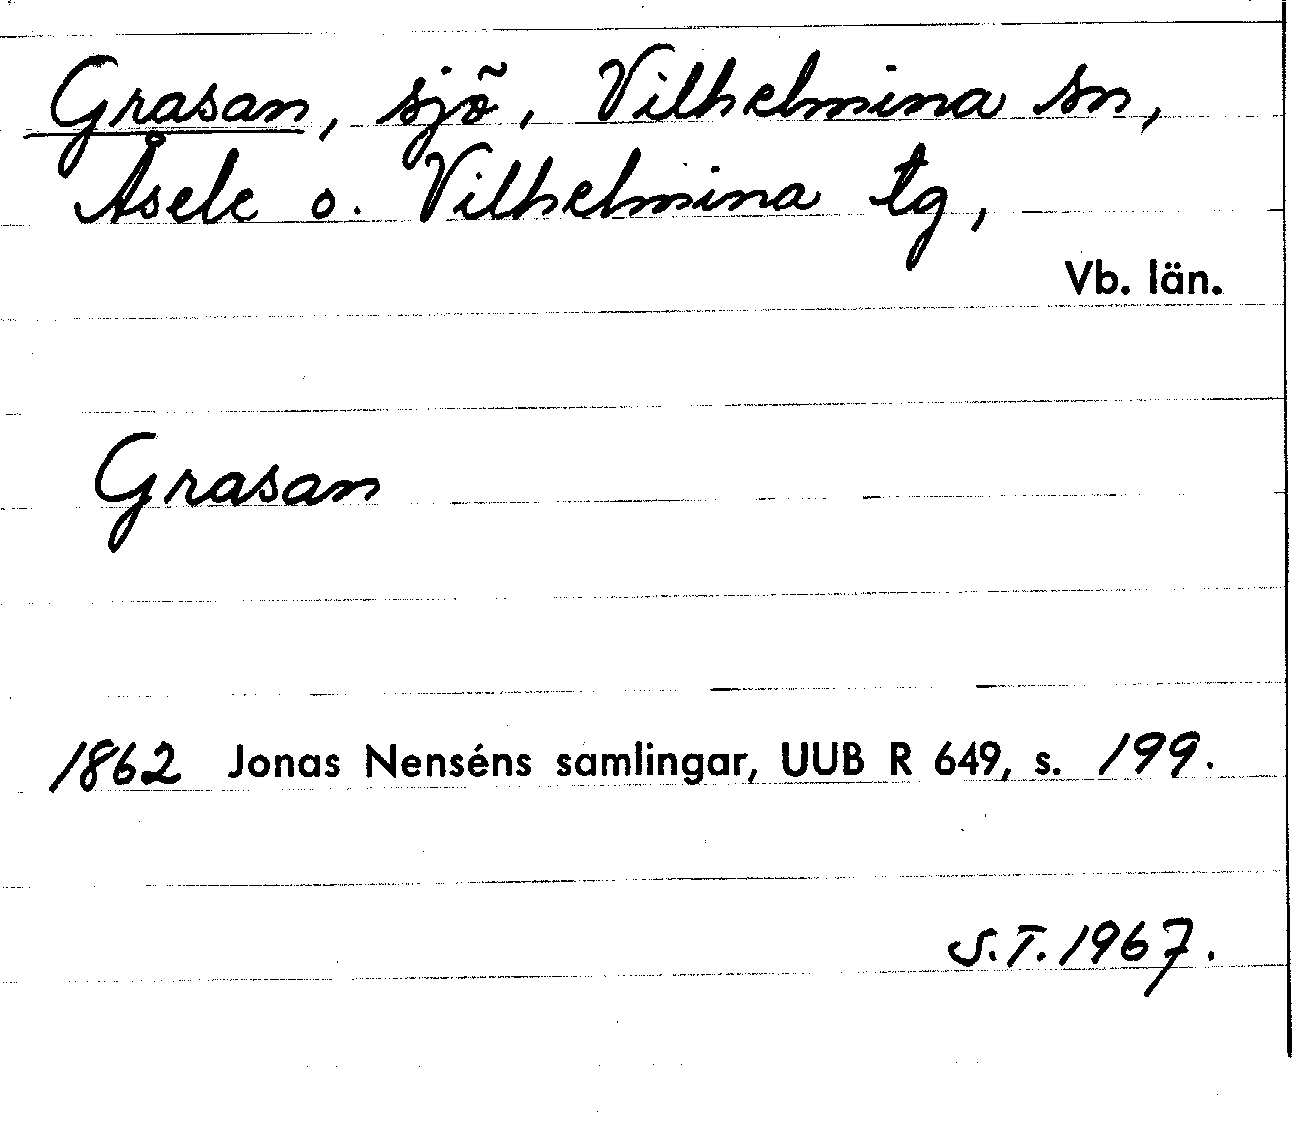 Grasan, sjö, Vilhelmina sn,
Åsele o. Vilhelmina tg,
Vb. län.
Grasan
1862 Jonas Nenséns samlingar, UUB R 649, s. 199.
S.T. 1967.